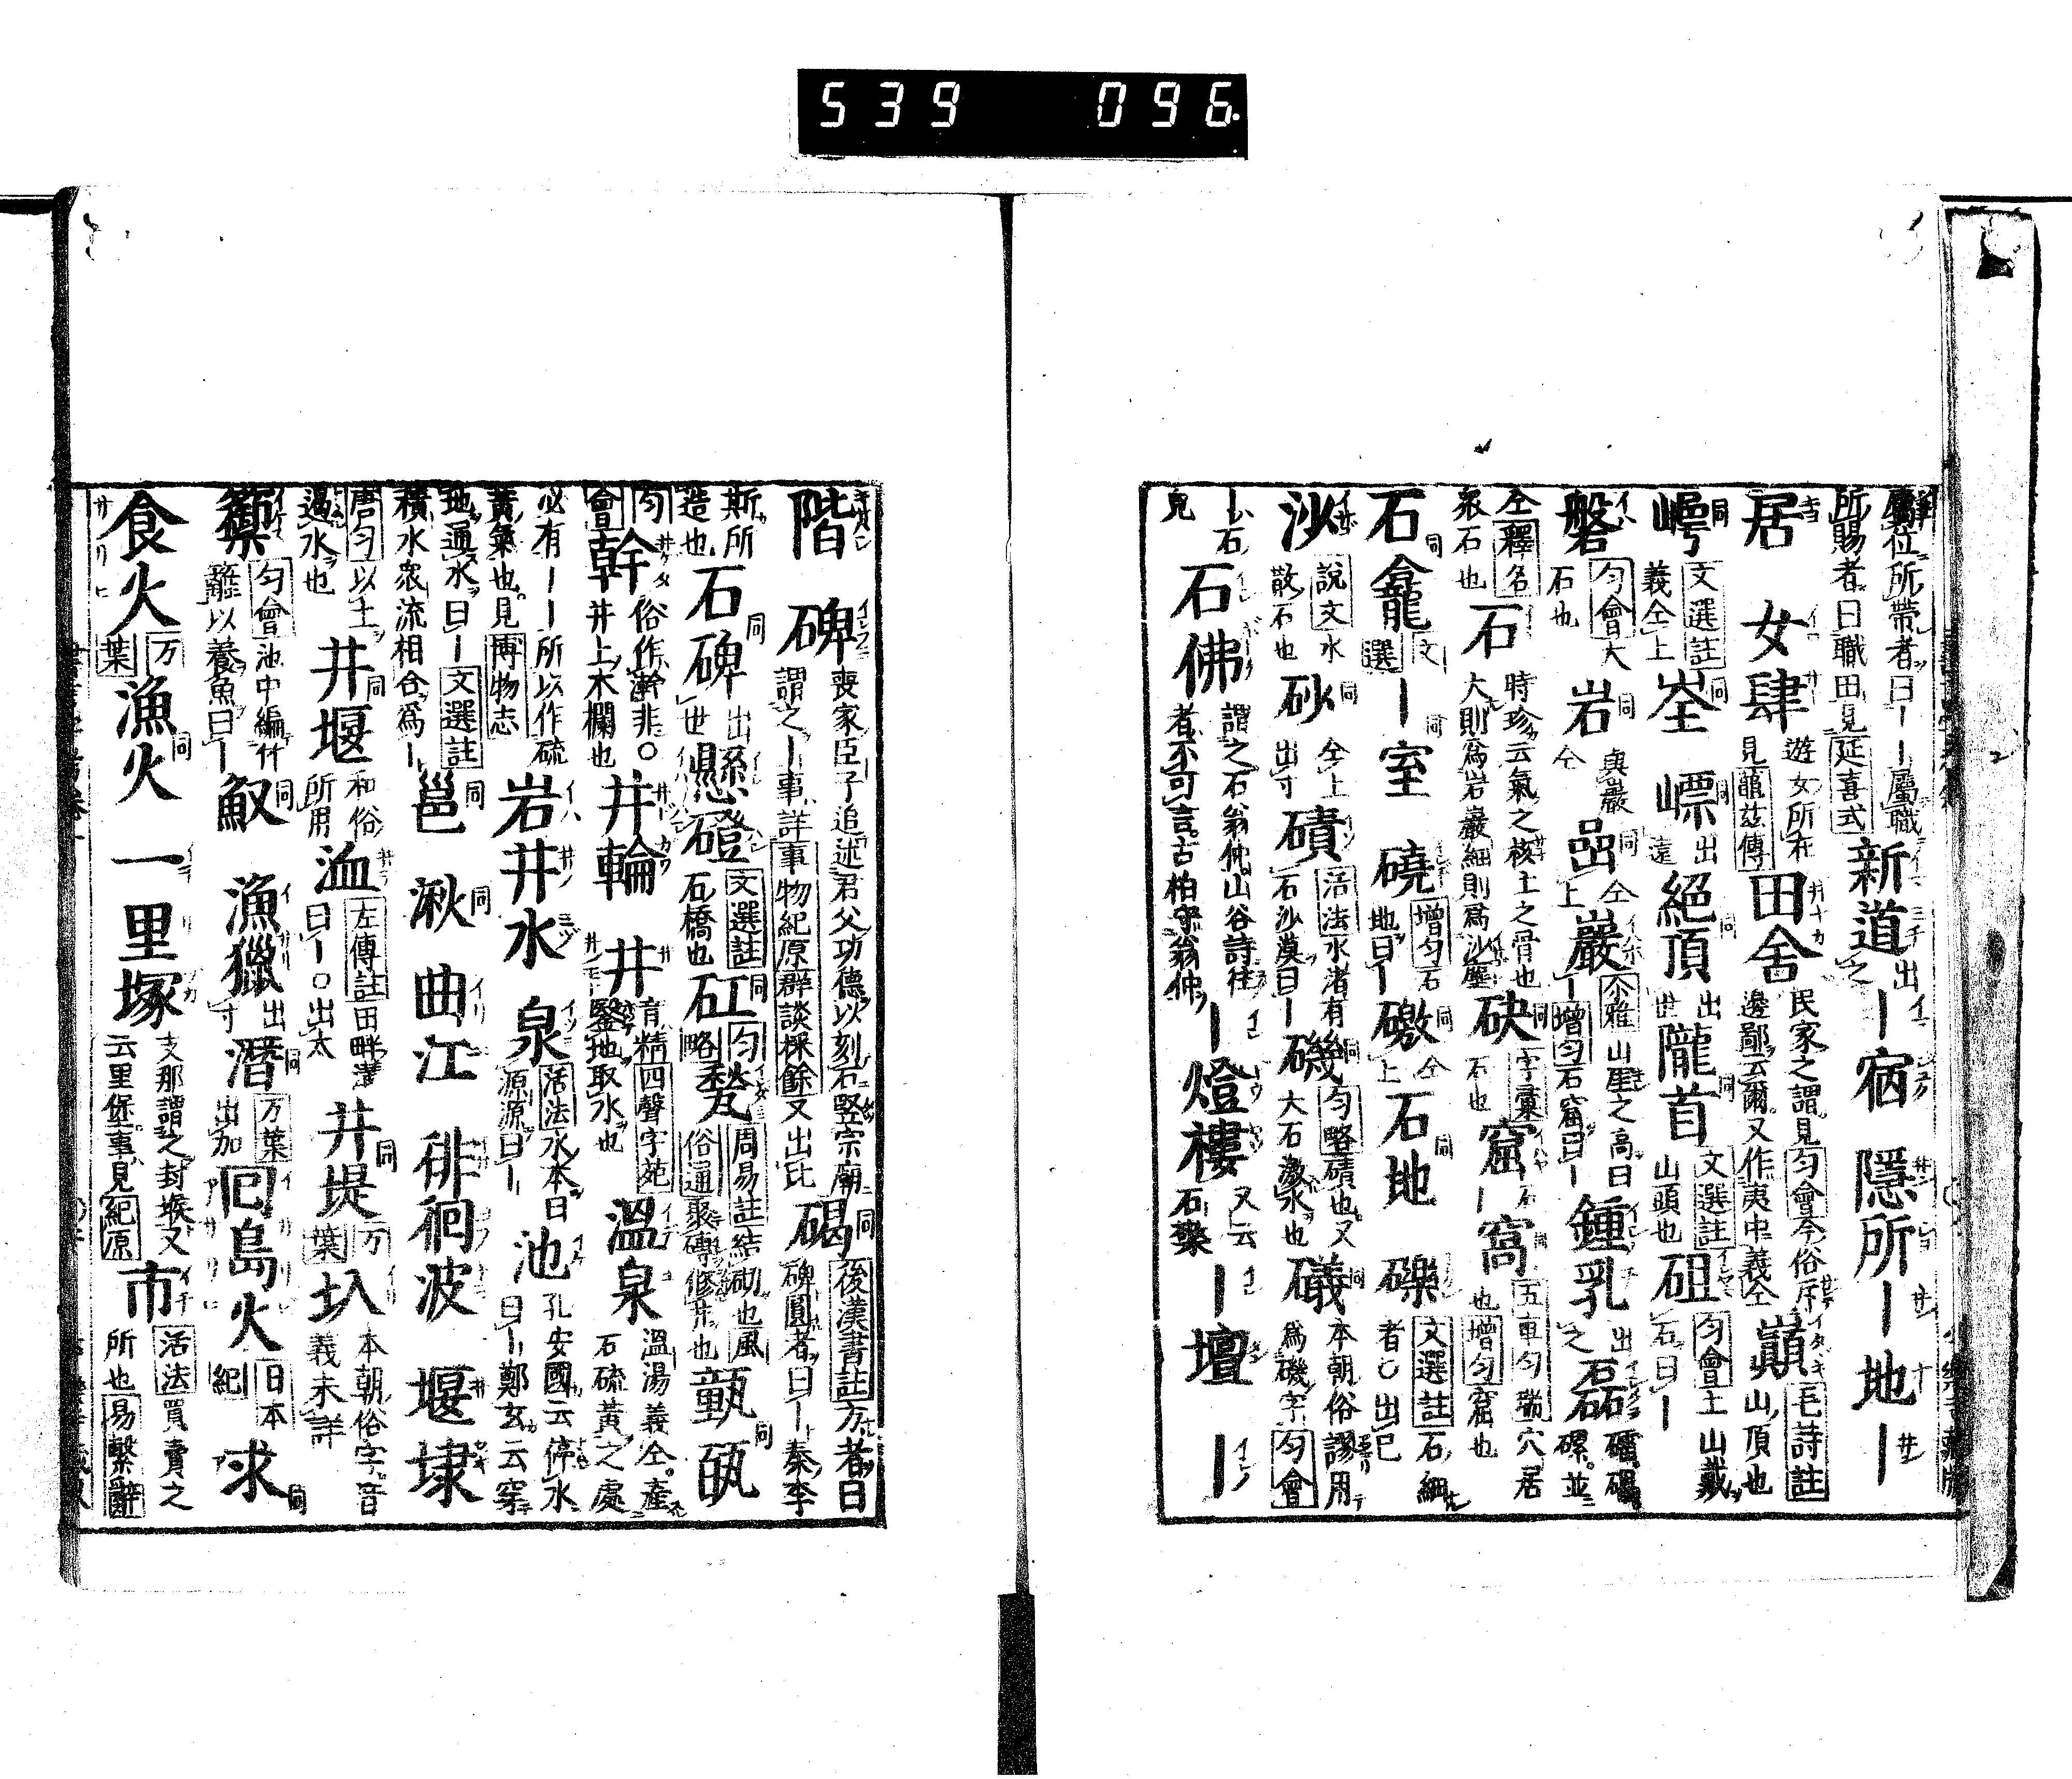 539 096
位所帶者曰――屬職
所賜者曰職田見延喜式 新道 出之 ―宿 隱所 ―地―
居 女肆 遊女所在見龍茲傳 田舍 民家之謂見匀會今俗斥邊鄙云爾又作夷中義仝 巓 毛詩註山頂也
崿 同 文選註義仝上 峑 同 嶛 同 出遠 絕頂 同 出世 隴首 同 文選註山頭也 砠 匀會土山戴石曰―
磐 匀會大石也 岩 同 與巖仝 嵒 同 仝上 巖 尒雅山厓之高曰―增匀石窟曰― 鍾乳 出之 磊
仝釋名衆石也 石 時珍云氣之核土之骨也大則爲岩巖細則爲沙塵 砄 同 字彙石也 窟 ―窩 五車匀瑞穴居也增匀窟也
石龕 同 文選 ―室 同 磽 增匀石地曰― 礉 同 仝上 石地 同 礫 文選註石細者○出巳
沙 說文水散石也 砂 同 仝上出寸 磧 活法水渚有石沙漠曰― 磯 同 匀略磧也又大石激水也 礒 同 本朝俗謬用爲磯字匀會
石皃 石佛 謂之石翁仲山谷詩往者不可言古柏守翁仲 ―燈樓 又云石䔧 ―壇 ―
階 碑 喪家臣子追述君父功德以刻石竪宗廟謂之―事詳事物紀原群談採餘又出比 碣 同 後漢書註方者曰碑圓者曰―秦李
斯所造也 石碑 同 出世 懸磴 文選註石橋也 矼 同 匀略 甃 周易註結砌也風俗通聚磚修井也 甎瓳 同
匀會 幹 俗作澣非○井上木欄也 井輪 井 音精四聲字苑鑿地取水也 溫泉 溫湯義仝産石硫黃之處
必有――所以作硫黃氣也見博物志 岩井水 泉 活法水本曰源源曰― 池 孔安國云停水曰―鄭玄云穿
地通水曰―文選註積水衆流相合爲― 邕 同 湫 同 曲江 徘徊波 堰埭
唐匀以土遏水也 井堰 同 和俗所用 洫 左傳註田畔溝曰―○出太 井堤 同 万葉 圦 本朝俗字音義未詳
篽 匀會池中編竹籬以養魚曰― 䱷 同 漁獵 出寸 潛 同 万葉出加 回島火 日本紀 求 同
食火 万葉 漁火 同 一里塚 支那謂之封堠又云里堡事見紀原 市 活法買賣之所也易繫辭